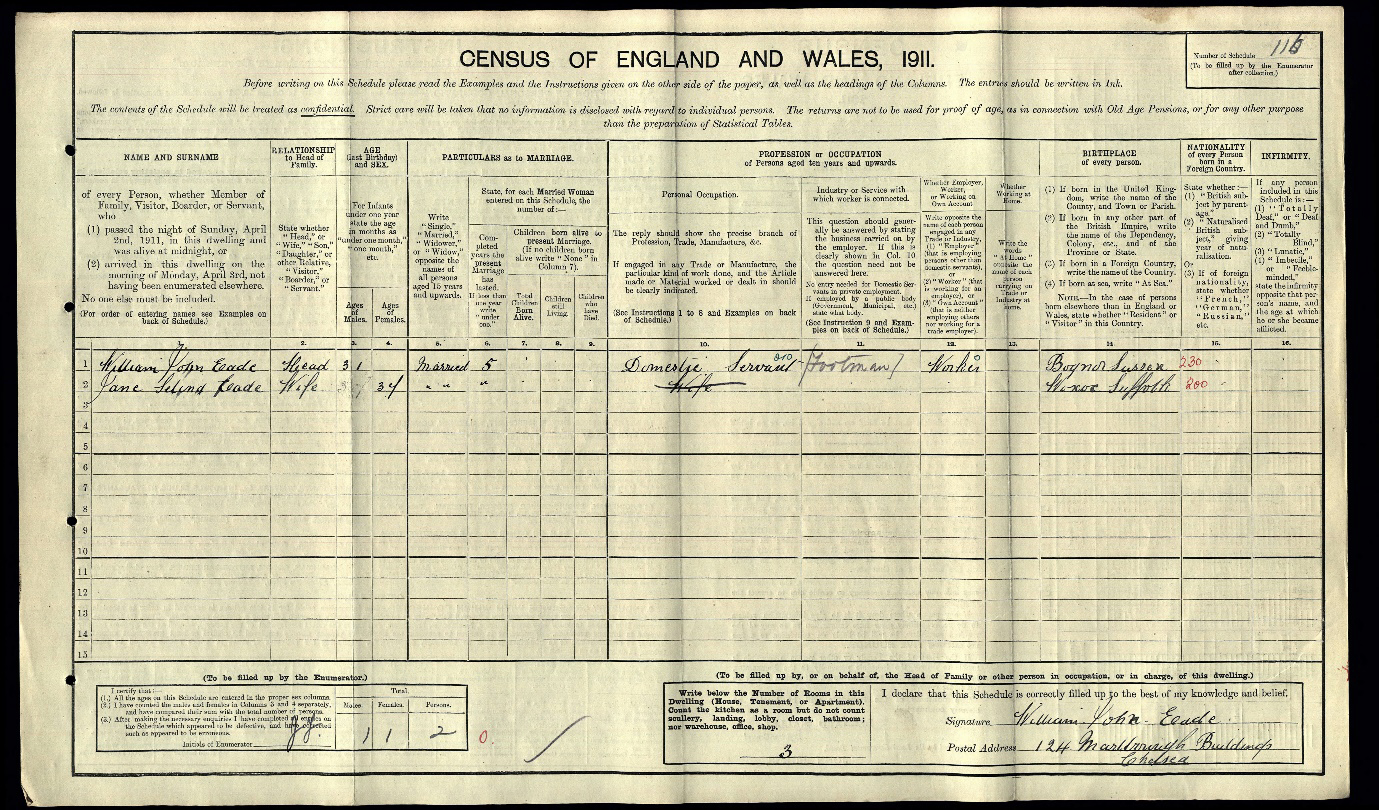 CENSUS OF ENGLAND AND WALES, 1911.
Number of Schedule
(To be filled up by the Enumerator
after collection.)
Before writing on this Schedule please read the Examples and the Instructions given on the other side of the paper, as well as the headings of the Columns. The entries should be written in Ink.
The contents of the Schedule will be treated as confidential. Strict care will be taken that no information is disclosed with regard to individual persons. The returns are not to be used for proof of age, as in connection with Old Age Pensions, or for any other purpose
than the preparation of Statistical Tables.
NAME AND SURNAME
of every Person, whether Member of
Family, Visitor, Boarder, or Servant,
who
(1) passed the night of Sunday, April
2nd, 1911, in this dwelling and
was alive at midnight, or
(2) arrived in this dwelling on the
morning of Monday, April 3rd, not
having been enumerated elsewhere.
No one else must be included.
(For order of entering names see Examples on
back of Schedule.)
RELATIONSHIP
to Head of
Family.
State whether
"Head," or
"Wife," "Son,"
"Daughter," or
other Relative,
"Visitor,"
"Boarder," or
"Servant."
AGE
(last Birthday)
and SEX.
For Infants
under one year
state the age
in months as
"under one month,"
"one month,"
etc.
Ages
of
Males.
Ages
of
Females.
PARTICULARS as to MARRIAGE.
Write
"Single,"
"Married,"
"Widower,"
or "Widow,"
opposite the
names of
all persons
aged 15 years
and upwards.
State, for each Married Woman
entered on this Schedule, the
number of:—
Completed
years the
present
Marriage
has
lasted.
If less than
one year
write
"under
one."
Children born alive to
present Marriage.
(If no children born
alive write "None" in
Column 7).
Total
Children
Born
Alive.
Children
still
Living.
Children
who
have
Died.
PROFESSION or OCCUPATION
of Persons aged ten years and upwards.
Personal Occupation.
The reply should show the precise branch of
Profession, Trade, Manufacture, &c.
If engaged in any Trade or Manufacture, the
particular kind of work done, and the Article
made or Material worked or dealt in should
be clearly indicated.
(See Instructions 1 to 8 and Examples on back
of Schedule.)
Industry or Service with
which worker is connected.
This question should generally
be answered by stating
the business carried on by
the employer. If this is
clearly shown in Col. 10
the question need not be
answered here.
No entry needed for Domestic Servants
in private employment.
If employed by a public body
(Government, Municipal, etc.)
state what body.
(See Instruction 9 and Examples
on back of Schedule.)
Whether Employer,
Worker,
or Working on
Own Account.
Write opposite the
name of each person
engaged in any
Trade or Industry,
(1) "Employer"
(that is employing
persons other than
domestic servants),
or
(2) "Worker" (that
is working for an
employer), or
(3) "Own Account"
(that is neither
employing others
nor working for a
trade employer).
Whether
Working at
Home.
Write the
words
"At Home"
opposite the
name of each
person
carrying on
Trade or
Industry at
home.
BIRTHPLACE
of every person.
(1) If born in the United Kingdom,
write the name of the
County, and Town or Parish.
(2) If born in any other part of
the British Empire, write
the name of the Dependency,
Colony, etc., and of the
Province or State.
(3) If born in a Foreign Country,
write the name of the Country.
(4) If born at sea, write "At Sea."
NOTE.—In the case of persons
born elsewhere than in England or
Wales, state whether "Resident" or
"Visitor" in this Country.
NATIONALITY
of every Person
born in a
Foreign Country.
State whether:—
(1) "British subject
by parentage."
(2) "Naturalised
British subject,"
giving
year of naturalisation.
Or
(3) If of foreign
nationality,
state whether
"French,"
"German,"
"Russian,"
etc.
INFIRMITY.
If any person
included in this
Schedule is:—
(1) "Totally
Deaf," or "Deaf
and Dumb,"
(2) "Totally
Blind,"
(3) "Lunatic,"
(4) "Imbecile,"
or "Feeble-minded,"
state the infirmity
opposite that person's
name, and
the age at which
he or she became
afflicted.
1. 2. 3. 4. 5. 6. 7. 8. 9. 10. 11. 12. 13. 14. 15. 16.
1 William John Eade Head 31 Married 5 Domestic Servant (Footman) Worker Bognor Sussex 230
2 Jane Eade Wife 34 " " " Wife Suffolk 200
3
4
5
6
7
8
9
10
11
12
13
14
15
(To be filled up by the Enumerator.)
I certify that:—
(1.) All the ages on this Schedule are entered in the proper sex columns.
(2.) I have counted the males and females in Columns 3 and 4 separately,
and have compared their sum with the total number of persons.
(3.) After making the necessary enquiries I have completed all entries on
the Schedule which appeared to be defective, and have corrected
such as appeared to be erroneous.
Initials of Enumerator
Total.
Males. Females. Persons.
1 1 2
0.
(To be filled up by, or on behalf of, the Head of Family or other person in occupation, or in charge, of this dwelling.)
Write below the Number of Rooms in this
Dwelling (House, Tenement, or Apartment).
Count the kitchen as a room but do not count
scullery, landing, lobby, closet, bathroom;
nor warehouse, office, shop.
3
I declare that this Schedule is correctly filled up to the best of my knowledge and belief.
Signature William John Eade
Postal Address 124 Marlborough Buildings
Chelsea